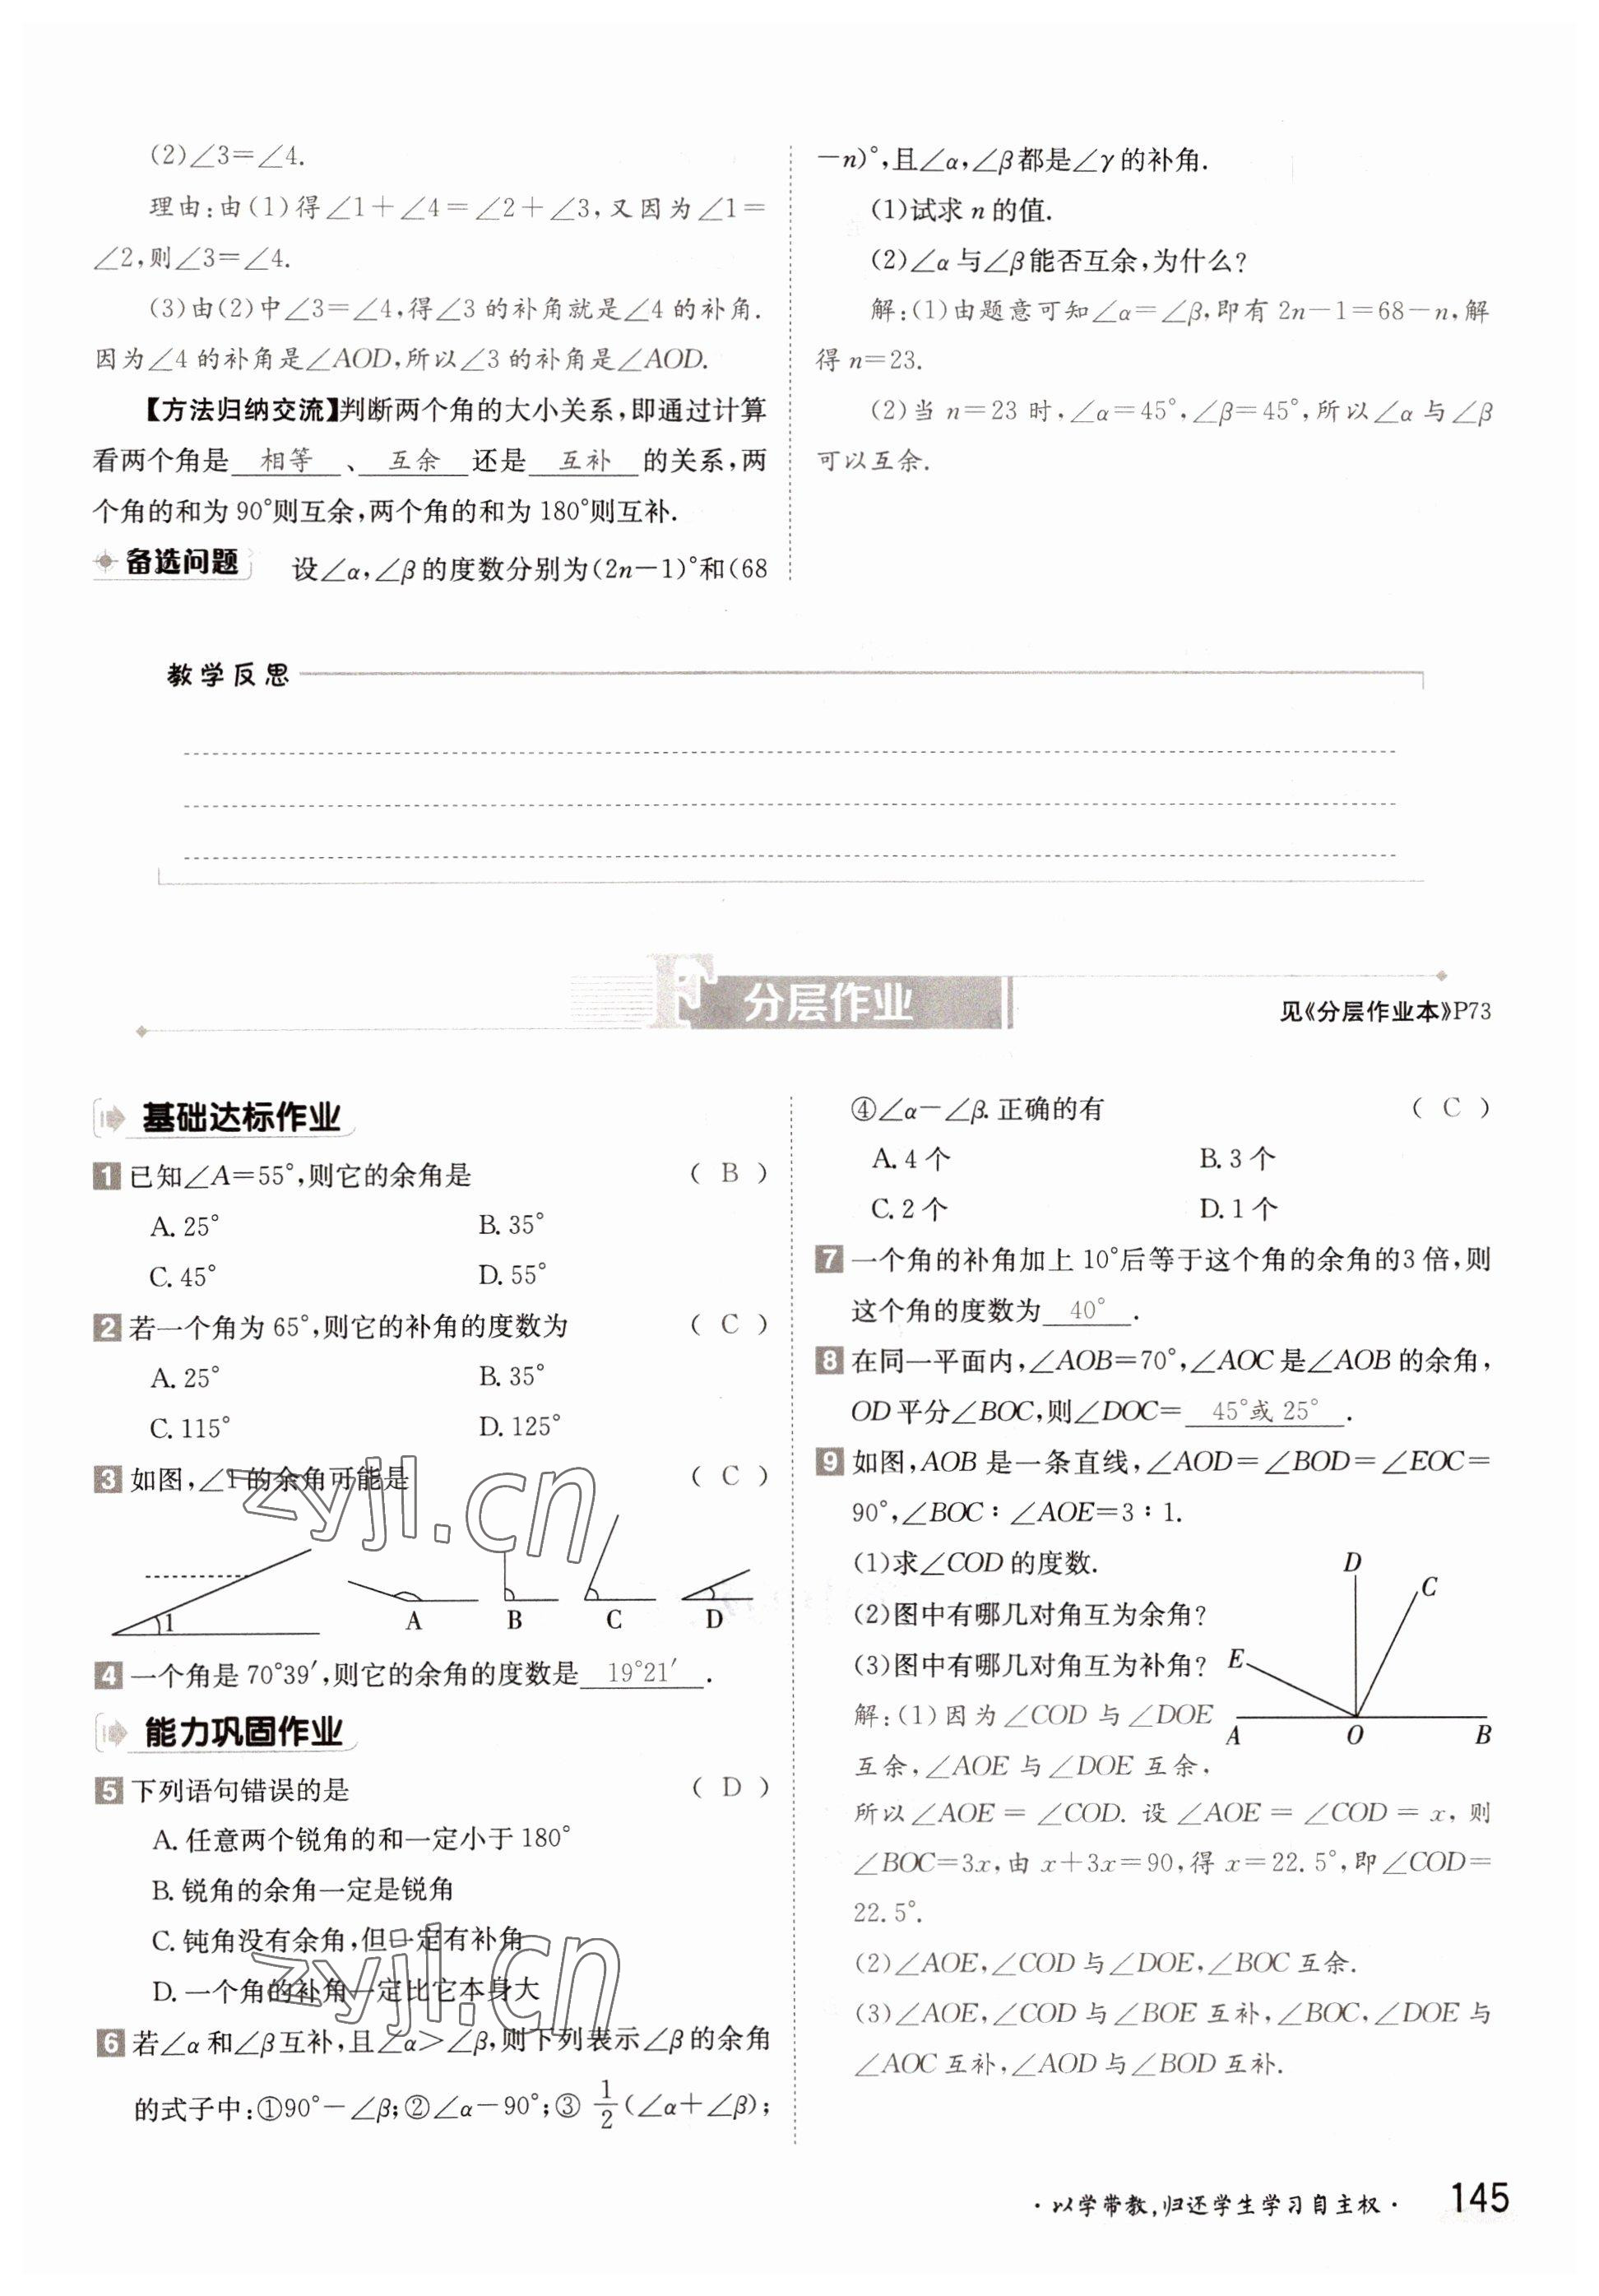 (2)∠3=∠4.
理由:由(1)得∠1+∠4=∠2+∠3,又因为∠1=
∠2,则∠3=∠4.
(3)由(2)中∠3=∠4,得∠3的补角就是∠4的补角.
因为∠4的补角是∠AOD,所以∠3的补角是∠AOD.
【方法归纳交流】判断两个角的大小关系,即通过计算
看两个角是 相等 、 互余 还是 互补 的关系,两
个角的和为90°则互余,两个角的和为180°则互补.
备选问题 设∠α,∠β的度数分别为(2n-1)°和(68
-n)°,且∠α,∠β都是∠γ的补角.
(1)试求n的值.
(2)∠α与∠β能否互余,为什么?
解:(1)由题意可知∠α=∠β,即有2n-1=68-n,解
得n=23.
(2)当n=23时,∠α=45°,∠β=45°,所以∠α与∠β
可以互余.
教学反思
F 分层作业
见《分层作业本》P73
基础达标作业
1 已知∠A=55°,则它的余角是 ( B )
A. 25° B. 35°
C. 45° D. 55°
2 若一个角为65°,则它的补角的度数为 ( C )
A. 25° B. 35°
C. 115° D. 125°
3 如图,∠1的余角可能是 ( C )
zyjl.cn
1 A B C D
4 一个角是70°39′,则它的余角的度数是 19°21′ .
能力巩固作业
5 下列语句错误的是 ( D )
A. 任意两个锐角的和一定小于180°
B. 锐角的余角一定是锐角
C. 钝角没有余角,但一定有补角
D. 一个角的补角一定比它本身大
zyjl.cn
6 若∠α和∠β互补,且∠α>∠β,则下列表示∠β的余角
的式子中:①90°-∠β;②∠α-90°;③ 1/2 (∠α+∠β);
④∠α-∠β. 正确的有 ( C )
A. 4个 B. 3个
C. 2个 D. 1个
7 一个角的补角加上10°后等于这个角的余角的3倍,则
这个角的度数为 40° .
8 在同一平面内,∠AOB=70°,∠AOC是∠AOB的余角,
OD平分∠BOC,则∠DOC= 45°或25° .
9 如图,AOB是一条直线,∠AOD=∠BOD=∠EOC=
90°,∠BOC∶∠AOE=3∶1.
(1)求∠COD的度数.
(2)图中有哪几对角互为余角?
(3)图中有哪几对角互为补角?
D C E A O B
解:(1)因为∠COD与∠DOE
互余,∠AOE与∠DOE互余,
所以∠AOE=∠COD. 设∠AOE=∠COD=x,则
∠BOC=3x,由x+3x=90,得x=22.5°,即∠COD=
22.5°.
(2)∠AOE,∠COD与∠DOE,∠BOC互余.
(3)∠AOE,∠COD与∠BOE互补,∠BOC,∠DOE与
∠AOC互补,∠AOD与∠BOD互补.
·以学带教,归还学生学习自主权· 145